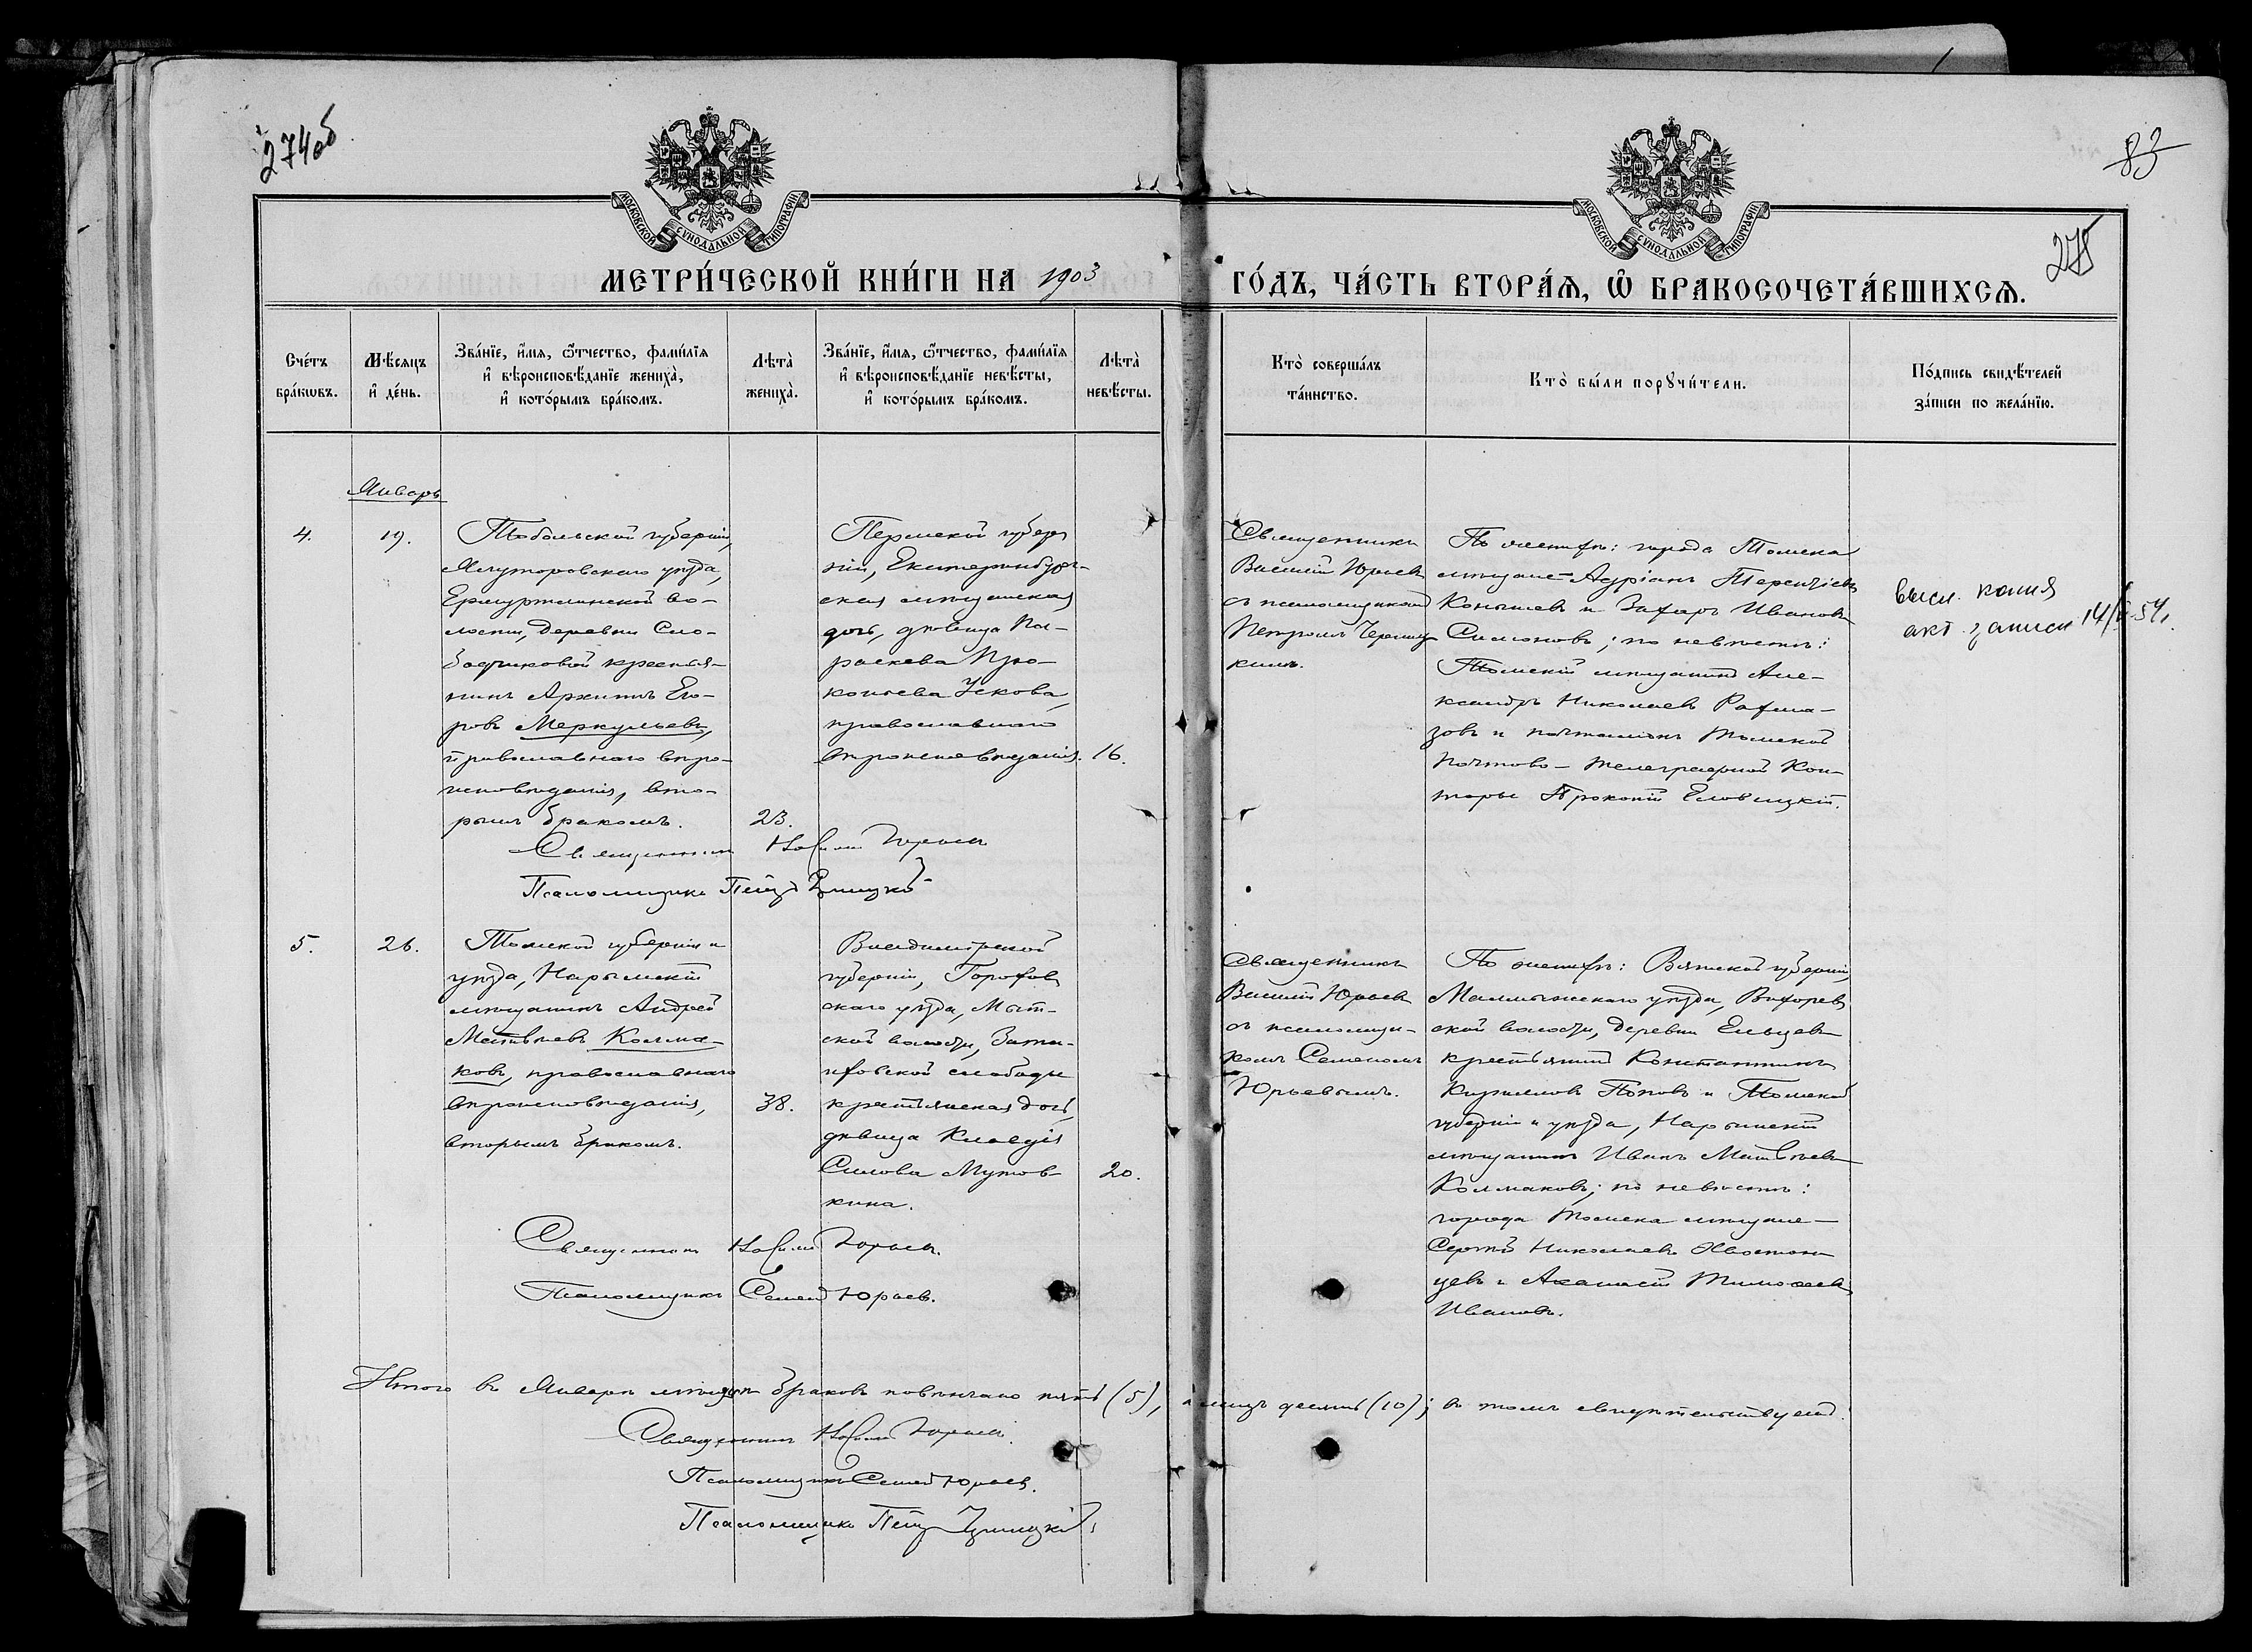 274об
83
275
МОСКОВСКОЙ СУНОДАЛЬНОЙ ТИПОГРАФІИ
МОСКОВСКОЙ СУНОДАЛЬНОЙ ТИПОГРАФІИ
МЕТРИ́ЧЕСКОЙ КНИ́ГИ НА 1903 ГО́ДЪ, ЧА́СТЬ ВТОРА́Я, Ѡ БРАКОСОЧЕТА́ВШИХСЯ.
Сче́тъ
бра́кωвъ.
Мѣ́сяцъ
и҆ де́нь.
Зва́нїе, и҆́мя, ѻ҆́тчество, фами́лїя
и҆ вѣроисповѣ́данїе жениха̀,
и҆ кото́рымъ бра́комъ.
Лѣта̀
жениха̀.
Зва́нїе, и҆́мя, ѻ҆́тчество, фами́лїя
и҆ вѣроисповѣ́данїе невѣ́сты,
и҆ кото́рымъ бра́комъ.
Лѣта̀
невѣ́сты.
Кто̀ соверша́лъ
та́инство.
Кто̀ бы́ли порꙋчи́тели.
По́дпись свидѣ́телей
за́писи по жела́нїю.
Январь
4.
19.
Тобольской губерніи,
Ялуторовскаго уѣзда,
Емуртлинской во-
лости, деревни Сло-
бодчиковой крестья-
нинъ Архиппъ Его-
ровъ Меркульевъ,
православнаго вѣро-
исповѣданія, вто-
рымъ бракомъ.
23.
Пермской губер
ніи, Екатеринбург-
ская мѣщанская
дочь, дѣвица Па-
раскева Про-
копьева Ускова,
православнаго
вѣроисповѣданія.
16.
Священникъ
Василій Юрьевъ
съ псаломщикомъ
Петромъ
По женихѣ: города Томска
мѣщане Адріанъ Терентіевъ
Конышевъ и Захаръ Ивановъ
Симоновъ; по невѣстѣ:
Томскій мѣщанинъ Але-
ксандръ Николаевъ
и почталіонъ Томской
Почтово-телеграфной Кон-
торы Прокопій
высл. копия
акт. записи 14/
54г.
Священникъ Василій Юрьевъ
Псаломщикъ Петръ
5.
26.
Томской губерніи и
уѣзда, Нарымскій
мѣщанинъ Андрей
Матвѣевъ Колма-
ковъ, православнаго
вѣроисповѣданія,
вторымъ бракомъ.
38.
Владимірской
губерніи, Горохов
скаго уѣзда, Мыт-
ской волости,
слободы
крестьянская дочь,
дѣвица Клавдія
Силова Мутов-
кина.
20.
Священникъ
Василій Юрьевъ
съ псаломщи-
комъ Семеномъ
Юрьевымъ.
По женихѣ: Вятской губерніи,
Малмыжскаго уѣзда,
ской волости, деревни
крестьянинъ Константинъ
Кириловъ Поповъ и Томской
губерніи и уѣзда, Нарымскій
мѣщанинъ Иванъ Матвѣевъ
Колмаковъ; по невѣстѣ:
города Томска мѣщане
Сергѣй Николаевъ Хвостан
цевъ и Аѳанасій Тимоѳеевъ
Ивановъ.
Священникъ Василій Юрьевъ.
Псаломщикъ Семенъ Юрьевъ.
Итого въ Январѣ мѣсяцѣ браковъ повѣнчано пять (5), а лицъ десять (10); въ томъ свидѣтельствуемъ:
Священникъ Василій Юрьевъ.
Псаломщикъ Семенъ Юрьевъ.
Псаломщикъ Петръ